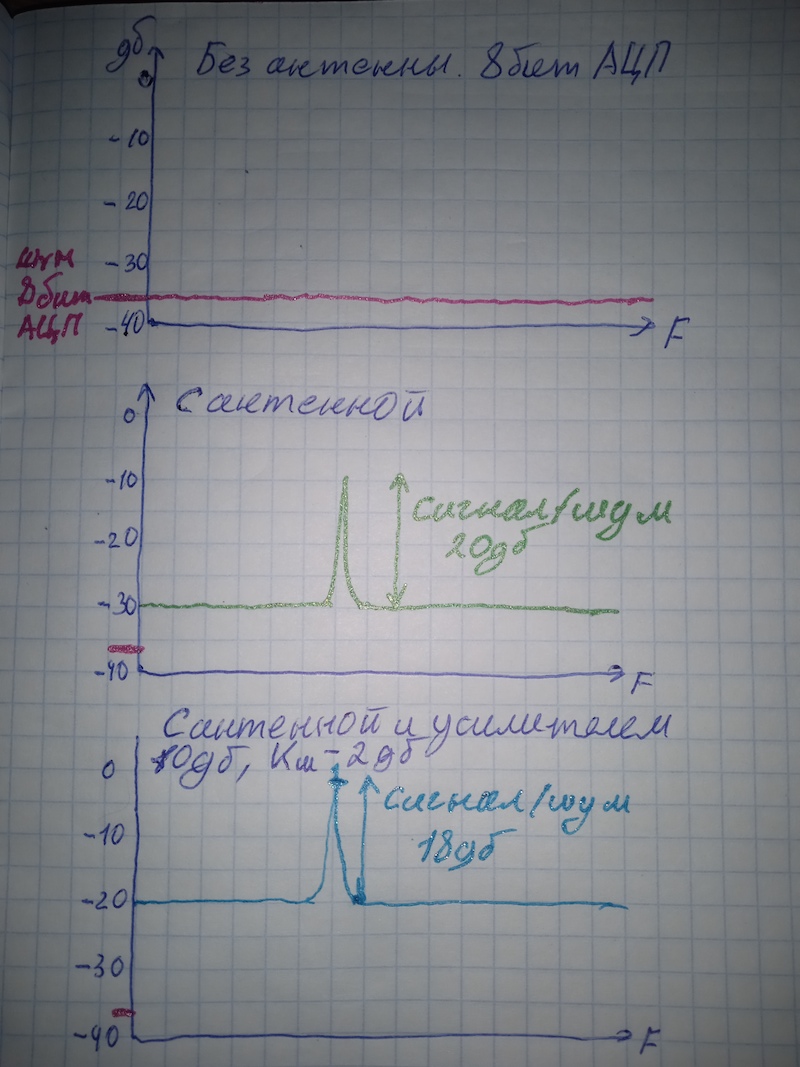 дб
Без антенны. 8бит АЦП
0
-10
-20
-30
шум
8бит
АЦП
-40
F
С антенной
0
-10
Сигнал/шум
20дб
-20
-30
-40
F
С антенной и усилителем
10дб, Кш-2дб
0
Сигнал/шум
18дб
-10
-20
-30
-40
F